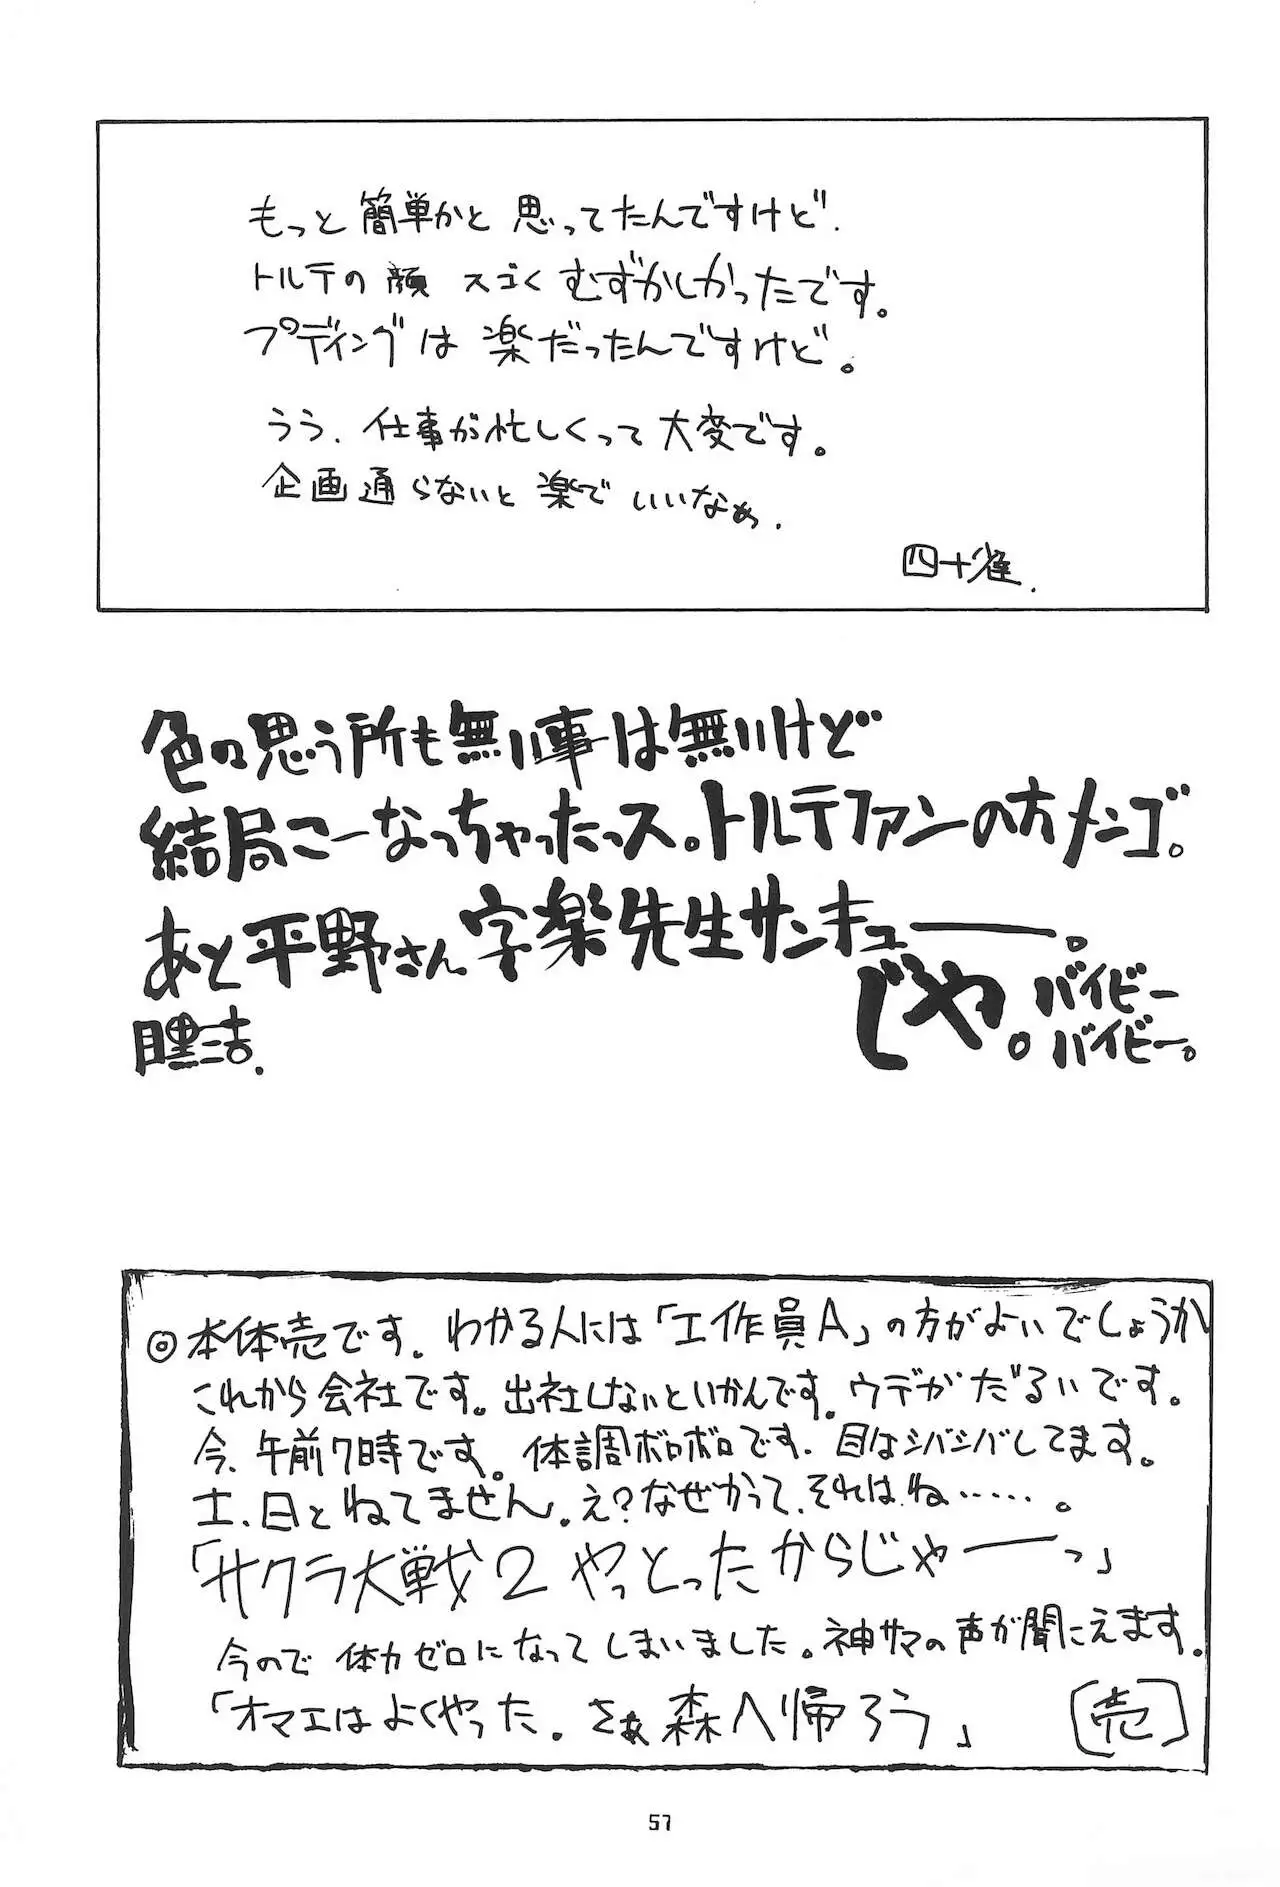 もっと簡単かと思ってたんですけど.
トルテの顔 スゴくむずかしかったです。
プディングは楽だったんですけど。
うう、仕事が忙しくって大変です。
企画通らないと楽でいいなぁ.
四十雀.
色々思う所も無い事は無いけど
結局こーなっちゃったっス。トルテファンの方メンゴ。
あと平野さん宇楽先生サンキュー――。
じゃ。バイビー
バイビー。
◎本体売です。わかる人には「工作員A」の方がよいでしょうか
これから会社です。出社しないといかんです。ウデがだるいです。
今、午前7時です。体調ボロボロです、目はシバシバしてます。
土、日とねてません。え?なぜかって、それはね……。
「サクラ大戦2やっとったからじゃーーっ」
今ので体力ゼロになってしまいました。神サマの声が聞こえます。
「オマエはよくやった。さぁ森へ帰ろう」
[売]
57